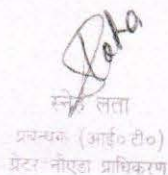 स्नेह लता
प्रबन्धक (आई० टी०)
ग्रेटर नौएडा प्राधिकरण